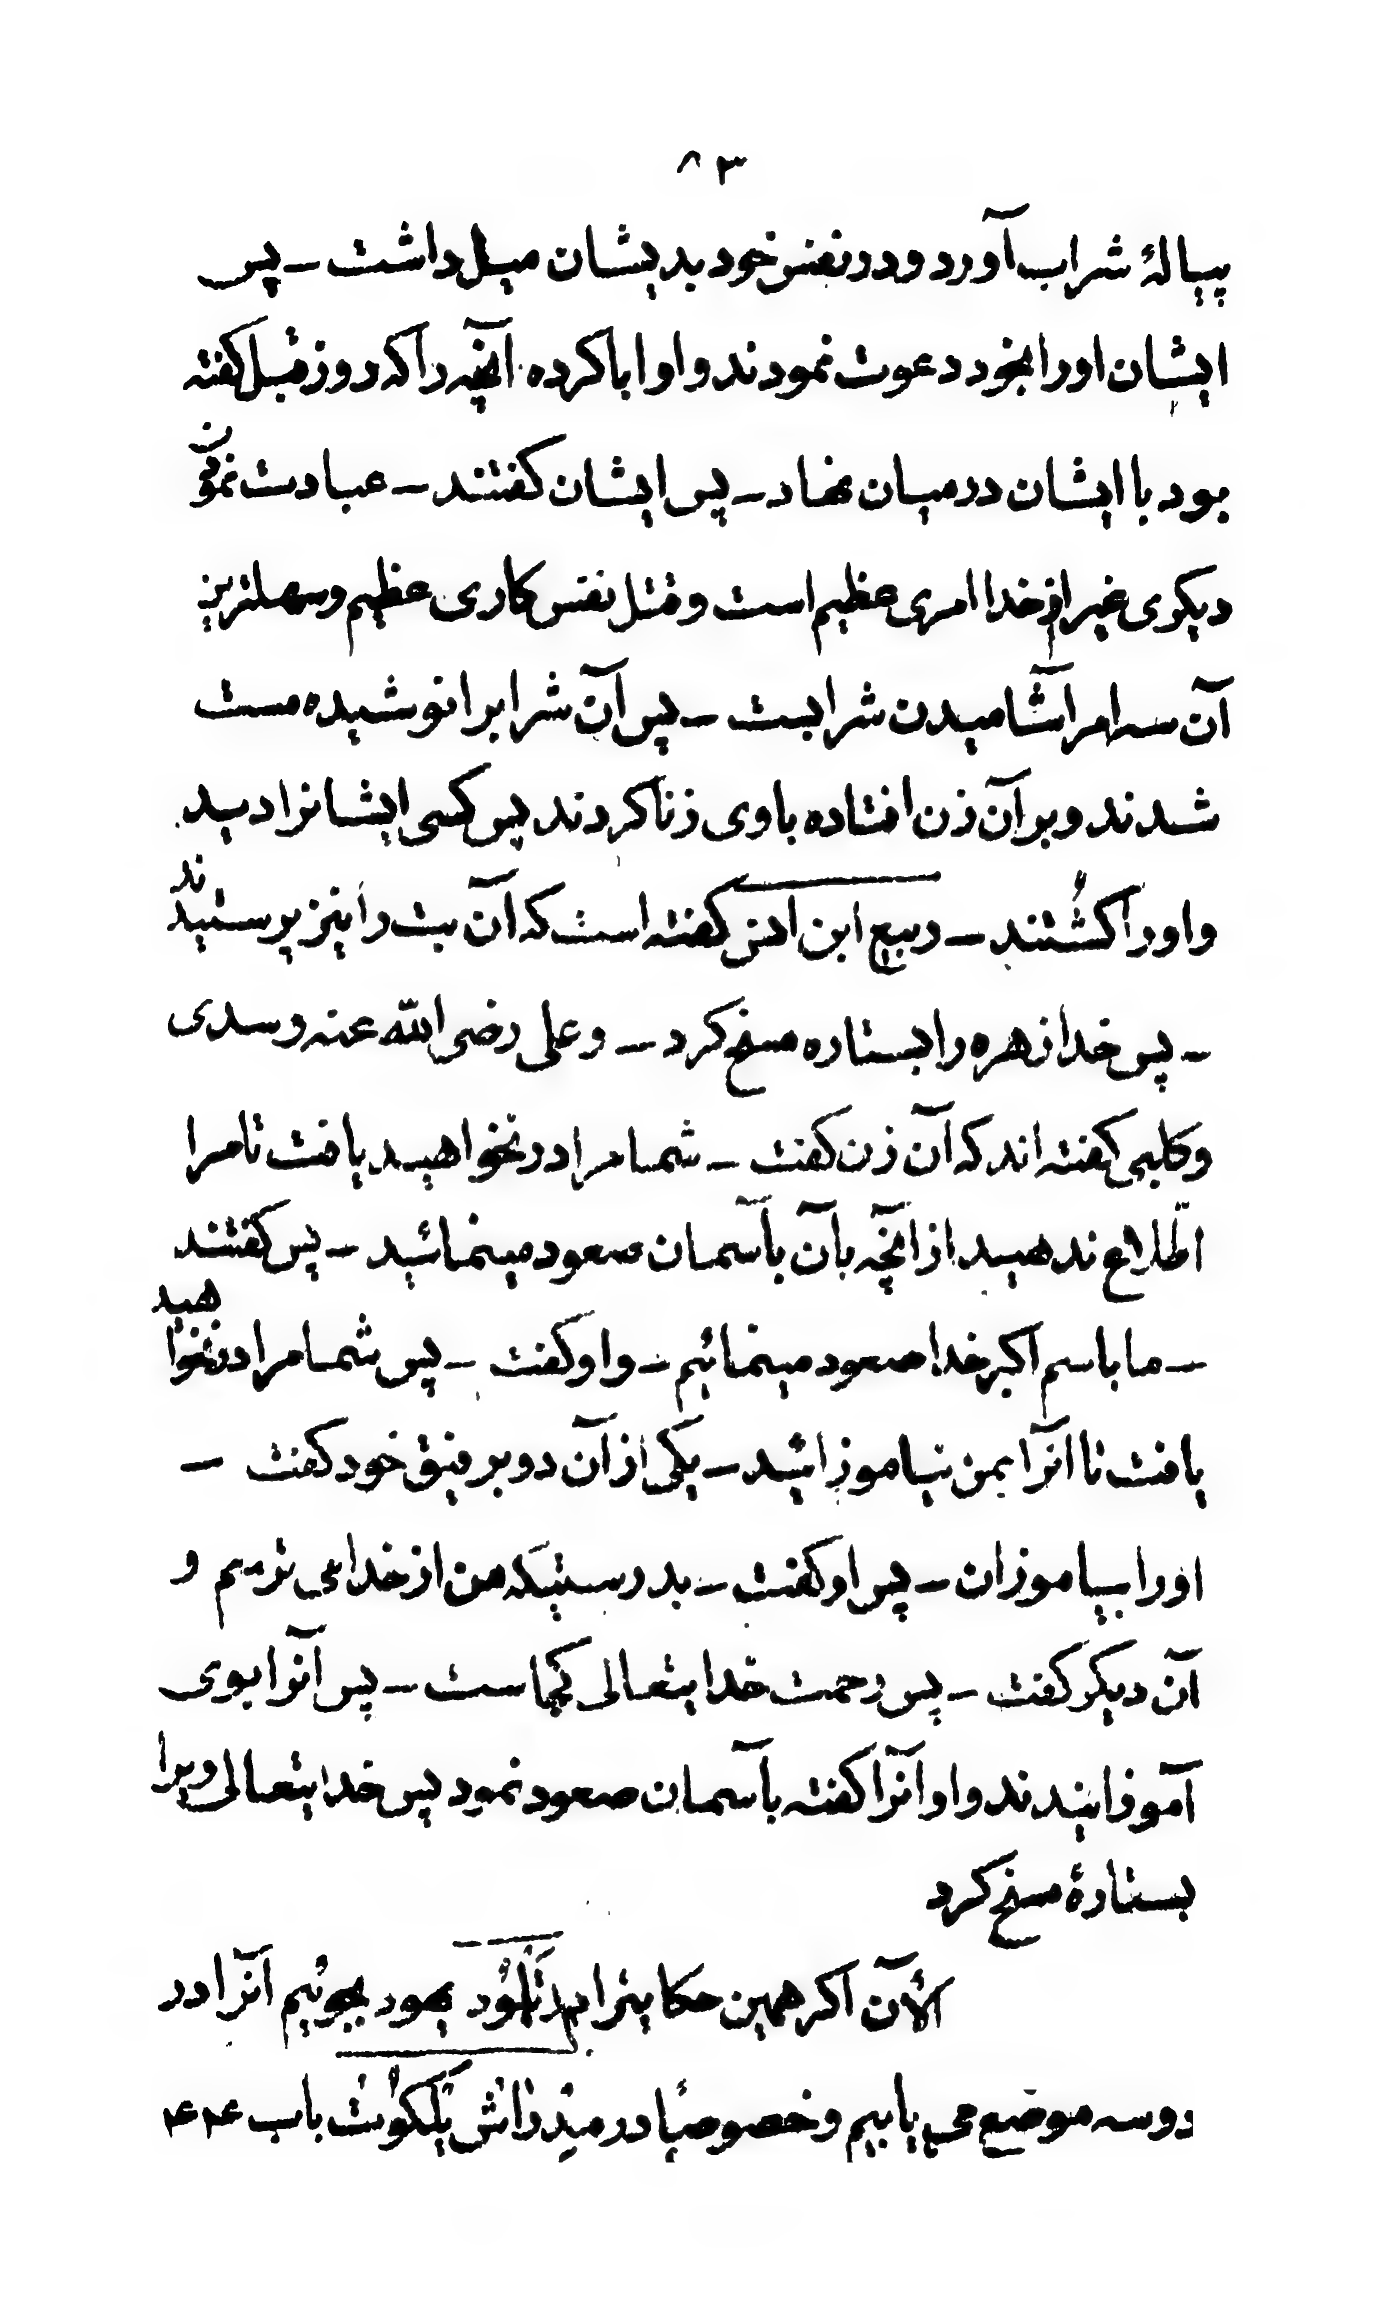 ۸۳
پیالهٔ شراب آورد و در نفس خود بدیشان میل داشت – پس
ایشان او را بخود دعوت نمودند و او ابا کرده آنچه را که روز قبل گفته
بود با ایشان در میان نهاد – پس ایشان گفتند – عبادت نمودن
دیکری غیر از خدا امری عظیم است و قتل نفس کاری عظیم و سهلترین
آن سه امر آشامیدن شرابست – پس آن شرابرا نوشیده مست
شدند و بر آن زن افتاده با وی زنا کردند پس کسی ایشانرا دید
و او را کُشتند – ربیع ابن انس گفته است که آن بت را نیز پرستیدند
– پس خدا زهره را بستاره مسخ کرد – و علی رضی الله عنه و سدی
و کلبی گفته اند که آن زن کفت – شما مرا در نخواهید یافت تا مرا
اطّلاع ندهید از آنچه بآن بآسمان صعود مینمائید – پس کفتند
– ما باسم اکبر خدا صعود مینمائیم – و او کفت – پس شما مرا در نخواهید
یافت تا آنرا بمن نیاموزانید – یکی از آن دو بر فیق خود کفت –
او را بیاموزان – پس او کفت – بدرستیکه من از خدا می ترسم و
آن دیکر کفت – پس رحمت خدایتعالی کجاست – پس آنرا بوی
آموزانیدند و او آنرا کفته بآسمان صعود نمود پس خدایتعالی ویرا
بستارهٔ مسخ کرد
الأن اکر همین حکایترا در تَلمُود یهود بجوئیم آنرا در
دو سه موضع می یابیم و خصوصاً در مِدْراش یَلکوُتْ باب ۴۴